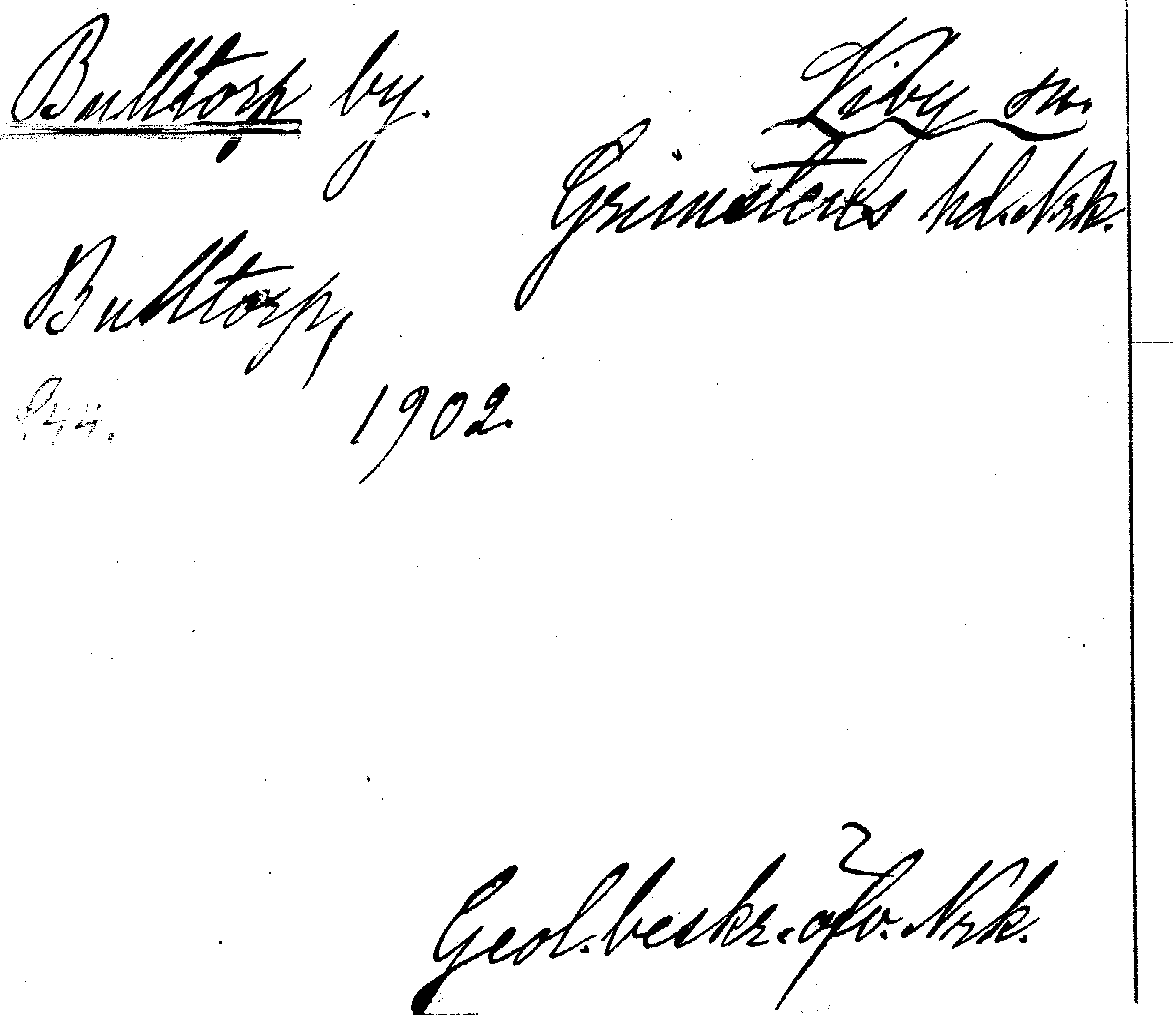 Bulltorp by.
Viby sn.
Grimstens hd. Nrk.
Bulltorp,
1902.
Geol. beskr. öfv. Nrk.